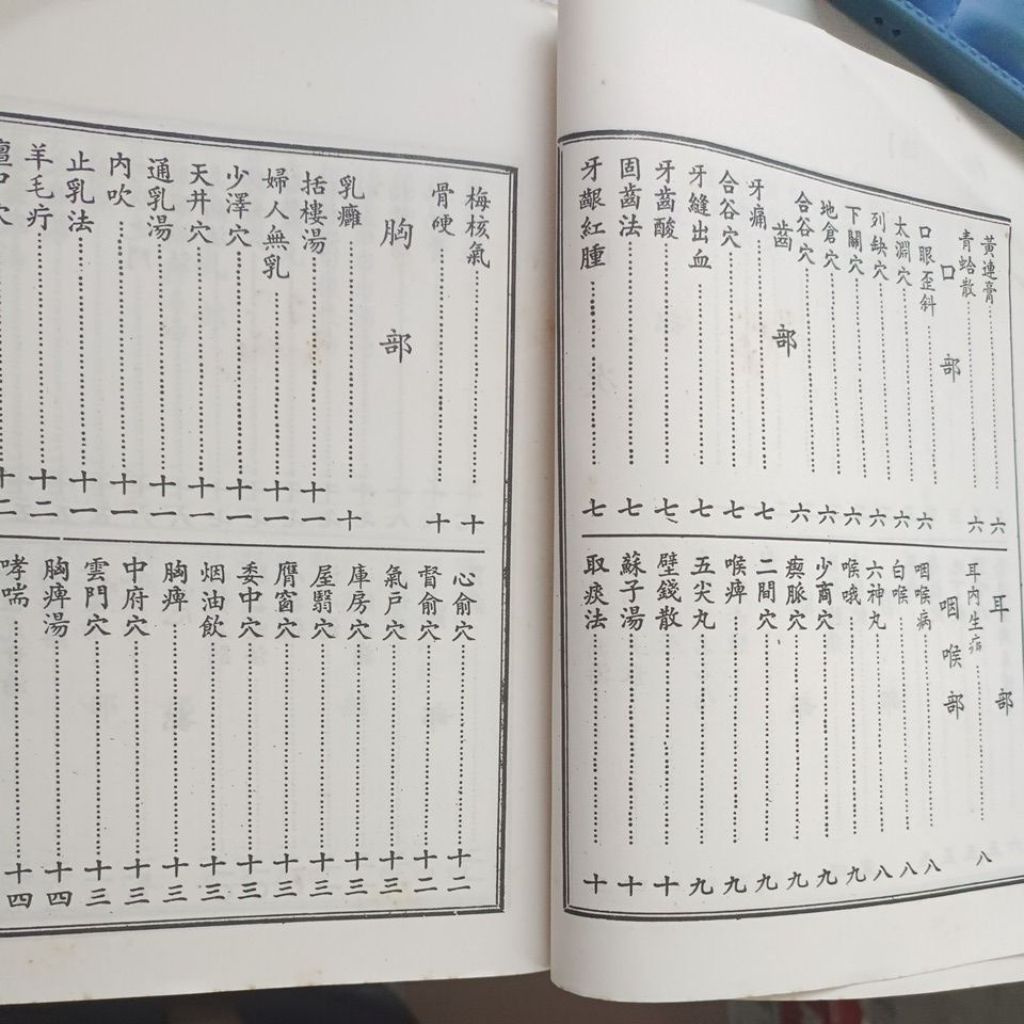 黃連膏……六
青蛤散……六
口部
口眼歪斜……六
太淵穴……六
列缺穴……六
下關穴……六
地倉穴……六
合谷穴……六
齒部
牙痛……七
合谷穴……七
牙縫出血……七
牙齒酸……七
固齒法……七
牙齦紅腫……七
耳部
耳內生疳……八
咽喉部
咽喉病……八
白喉……八
六神丸……八
喉哦……九
少商穴……九
瘈脈穴……九
二間穴……九
喉痺……九
五尖丸……九
壁錢散……十
蘇子湯……十
取痰法……十
梅核氣……十
骨硬……十
胸部
乳癰……十
括樓湯……十一
婦人無乳……十一
少澤穴……十一
天井穴……十一
通乳湯……十一
內吹……十一
止乳法……十一
羊毛疔……十二
穴……十二
心俞穴……十二
督俞穴……十二
氣戶穴……十三
庫房穴……十三
屋翳穴……十三
膺窗穴……十三
委中穴……十三
烟油飲……十三
胸痺……十三
中府穴……十三
雲門穴……十三
胸痺湯……十四
哮喘……十四